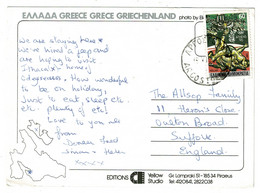 ΕΛΛΑΔΑ GREECE GRECE GRIECHENLAND photo by
We are staying here*
we've hired a jeep and
are hoping to visit
40 degrees. How wonderful
to be on holiday,
Just to eat, sleep etc
etc. plenty of etc!
Love to you all
from
60
The Allsop Family
11 Heron's Close
Oulton Broad
Suffolk
England
EDITIONS Yellow Studio
Gr. Lampraki 51 - 18534 Piraeus
Tel: 4120841, 2822038